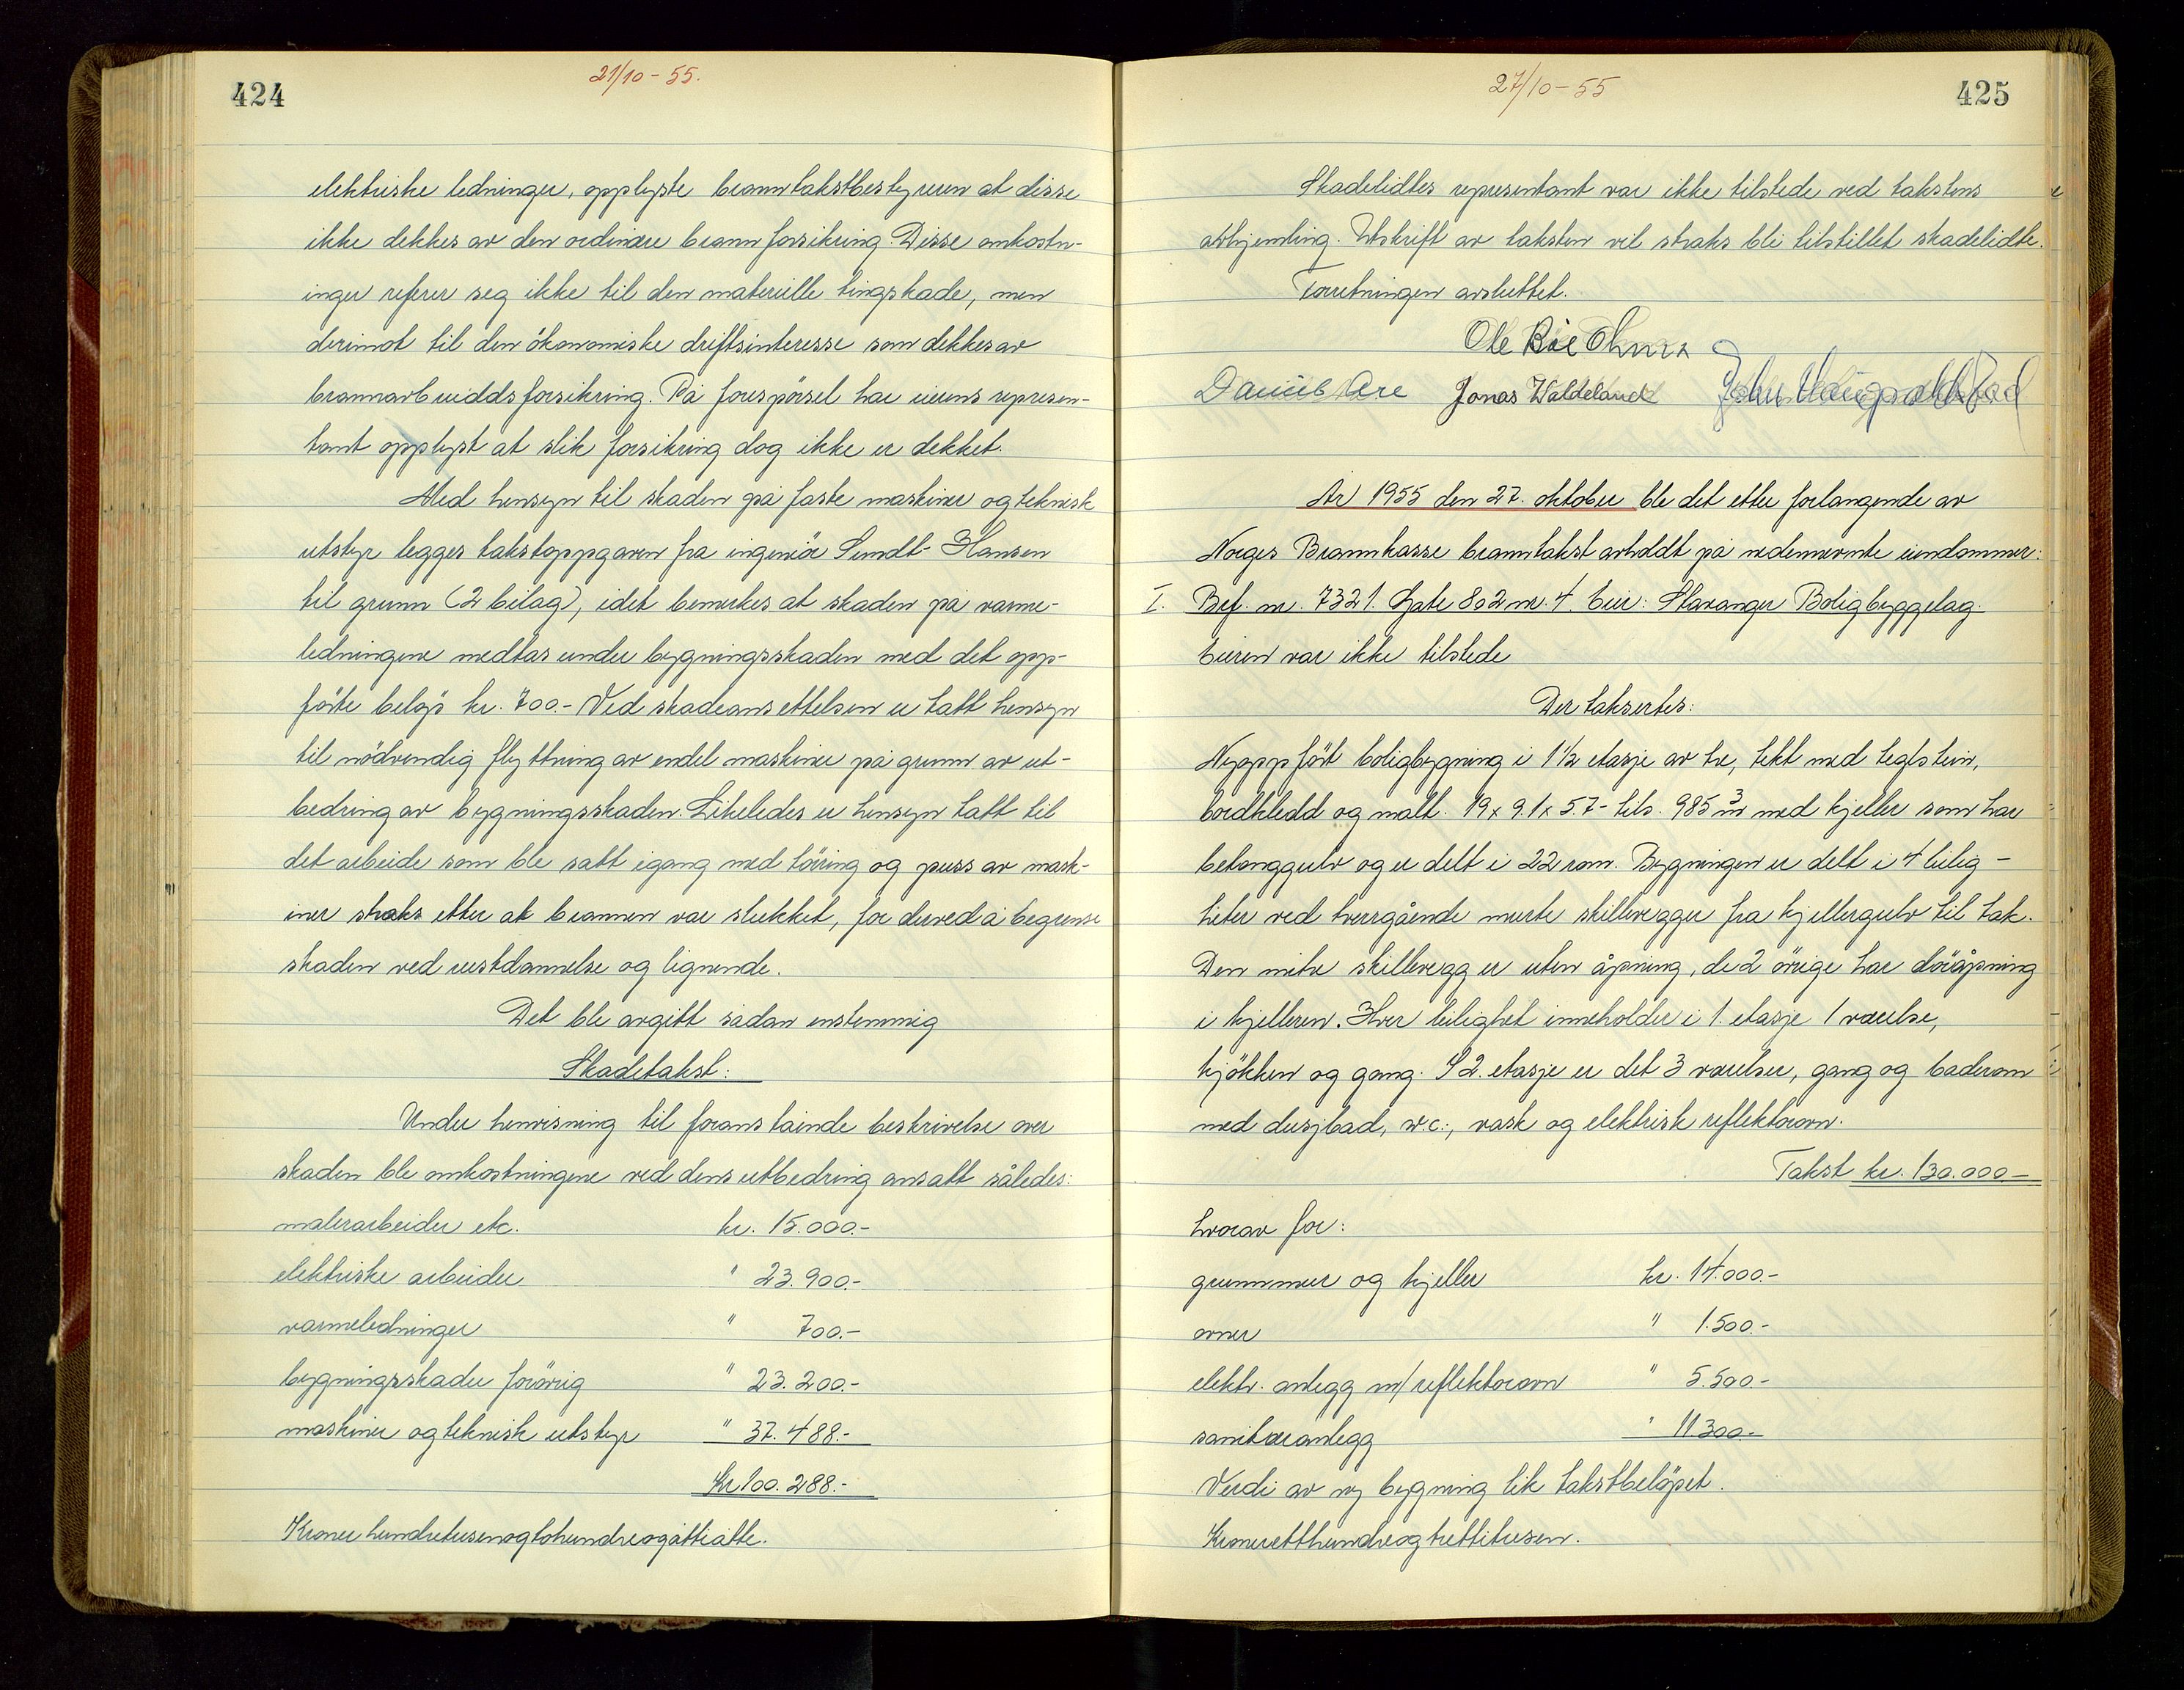 424
21/10-55.
elektriske ledninger, opplyste branntakstbestyreren at disse
ikke dekkes av den ordinære brannforsikring. Disse omkostn-
inger referer seg ikke til den materielle tingskade, men
derimot til den ökonomiske driftsinteresse som dekkes av
brannavbruddsforsikring. På forespörsel har eierens represen-
tant opplyst at slik forsikring dog ikke er dekket.
Med hensyn til skaden på faste maskiner og teknisk
utstyr legges takstoppgaven fra ingeniör Sundt-Hansen
til grunn (2 bilag), idet bemerkes at skaden på varme-
ledningene medtas under bygningsskaden med det opp-
förte belöp kr. 700.- Ved skadeansettelsen er tatt hensyn
til nödvendig flyttning av endel maskiner på grunn av ut-
bedring av bygningsskaden. Likeledes er hensyn tatt til
det arbeide som ble satt igang med töring og puss av mask-
iner straks etter at brannen var slukket, for derved å begrense
skaden ved rustdannelse og lignende.
Det ble avgitt sådan enstemmig
Skadetakst:
Under henvisning til foranstående beskrivelse over
skaden ble omkostningene ved dens utbedring ansatt således:
malerarbeider etc. kr. 15.000.-
elektriske arbeider " 23.900.-
varmeledninger " 700.-
bygningsskader forövrig " 23.200.-
maskiner og teknisk utstyr " 37.488.-
Kr 100.288.-
Kroner hundretusenogtohundreogåttiåtte.
27/10-55
425
Skadelidtes representant var ikke tilstede ved takstens
avhjemling. Utskrift av taksten vil straks bli tilstillet skadelidte.
Forretningen avsluttet.
Ole Böe
Daniel Are Jonas Waldeland John
År 1955 den 27. oktober ble det etter forlangende av
Norges Brannkasse branntakst avholdt på nedennevnte eiendommer:
I. Bef. nr. 7321. Gate 802 nr. 4 Eier: Stavanger Boligbyggelag.
Eieren var ikke tilstede
Der taksertes:
Nyoppfört boligbygning i 1½ etasje av tre, tekt med teglstein,
bordkledd og malt. 19 x 9.1 x 5.7 - tils. 985 m³ med kjeller som har
betonggulv og er delt i 22 rom. Bygningen er delt i 4 leilig-
heter ved tverrgående murte skillevegger fra kjellergulv til tak.
Den mitre skillevegg er uten åpning, de 2 övrige har döråpning
i kjelleren. Hver leilighet inneholder i 1. etasje 1 værelse,
kjökken og gang. I 2. etasje er det 3 værelser, gang og baderom
med dusjbad, w.c., vask og elektrisk reflektorovn.
Takst kr. 130.000-
hvorav for:
grunnmur og kjeller kr. 14.000.-
ovner " 1.500.-
elektr. anlegg m/reflektorovn " 5.500.-
sanitæranlegg " 11300.-
Verdi av ny bygning lik takstbelöpet.
Kroneretthundreogtrettitusen.